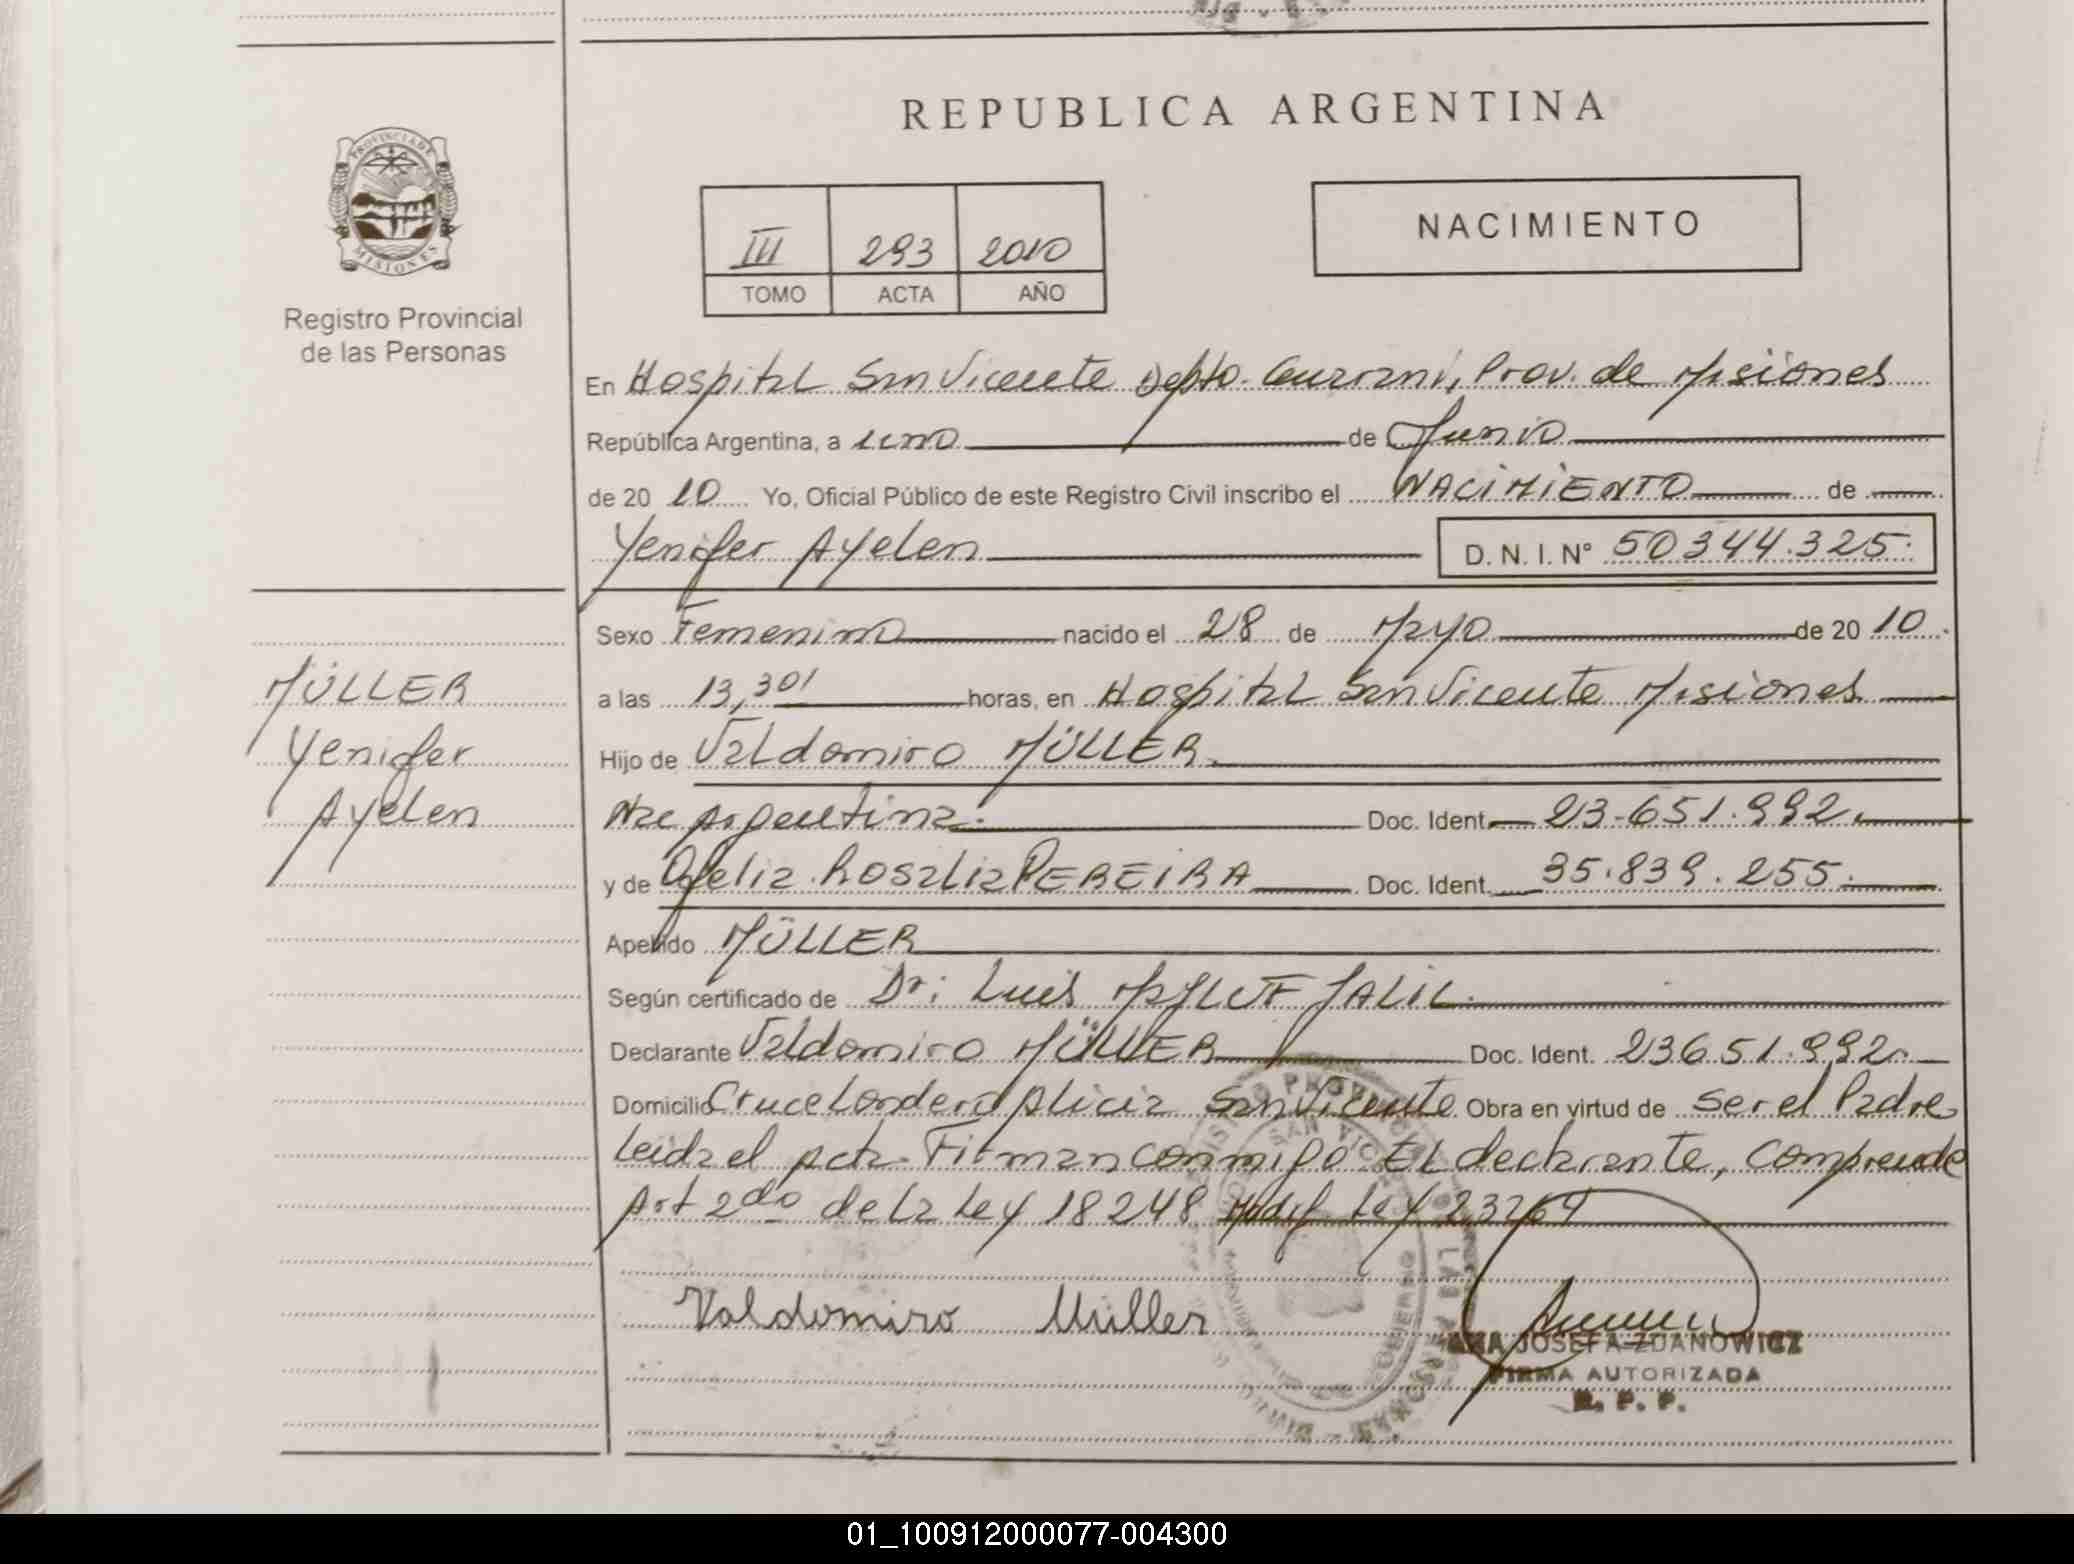 REPUBLICA ARGENTINA
PROVINCIA DE
MISIONES
Registro Provincial
de las Personas
III 293 2010
TOMO ACTA AÑO
NACIMIENTO
En Hospital San Vicente Depto. Guarani, Prov. de Misiones
República Argentina, a uno de Junio
de 20 10 Yo, Oficial Público de este Registro Civil inscribo el NACIMIENTO de
Yenifer Ayelen D. N. I. N° 50344.325.
Sexo Femenino nacido el 28 de Mayo de 20 10.
a las 13,30' horas, en Hospital San Vicente Misiones
Hijo de Valdomiro MÜLLER
Nac Argentina. Doc. Ident. 23.651.992.
y de Ofelia Rosalia PEREIRA Doc. Ident. 35.839.255.
Apellido MÜLLER
Según certificado de Dr: Luis JALIL.
Declarante Valdomiro MÜLLER Doc. Ident. 23651.992.
Domicilio Cruce Londero Alicia San Vicente Obra en virtud de ser el Padre
Leida el acta. Firman conmigo El declarante, comprende
Art 2do de la Ley 18248 Modif Ley 23264
MÜLLER
Yenifer
Ayelen
Valdomiro Müller
ANA JOSEFA ZDANOWICZ
FIRMA AUTORIZADA
R. P. P.
01_100912000077-004300